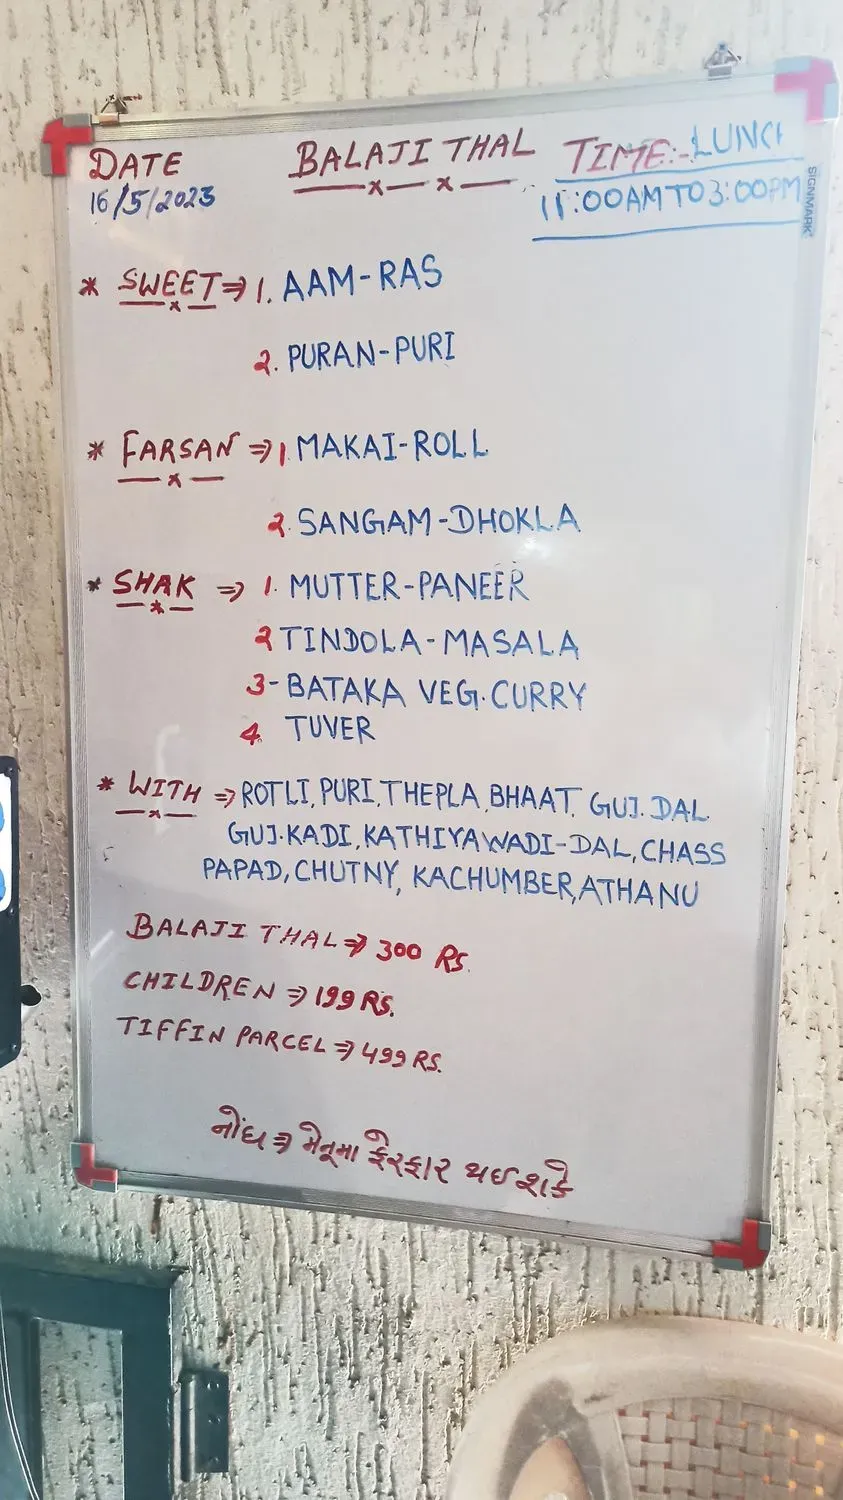 DATE
16/5/2023
BALAJI THAL
TIME:- LUNCH
11:00AM TO 3:00PM
SIGNMARK
* SWEET ⇒ 1. AAM-RAS
2. PURAN-PURI
* FARSAN ⇒ 1. MAKAI-ROLL
2. SANGAM-DHOKLA
* SHAK ⇒ 1. MUTTER-PANEER
2 TINDOLA-MASALA
3- BATAKA VEG. CURRY
4. TUVER
* WITH ⇒ ROTLI, PURI, THEPLA, BHAAT, GUJ. DAL
GUJ. KADI, KATHIYAWADI-DAL, CHASS
PAPAD, CHUTNY, KACHUMBER, ATHANU
BALAJI THAL ⇒ 300 RS.
CHILDREN ⇒ 199 RS.
TIFFIN PARCEL ⇒ 499 RS.
નોંધ ⇒ મેનૂમા ફેરફાર થઇ શકે